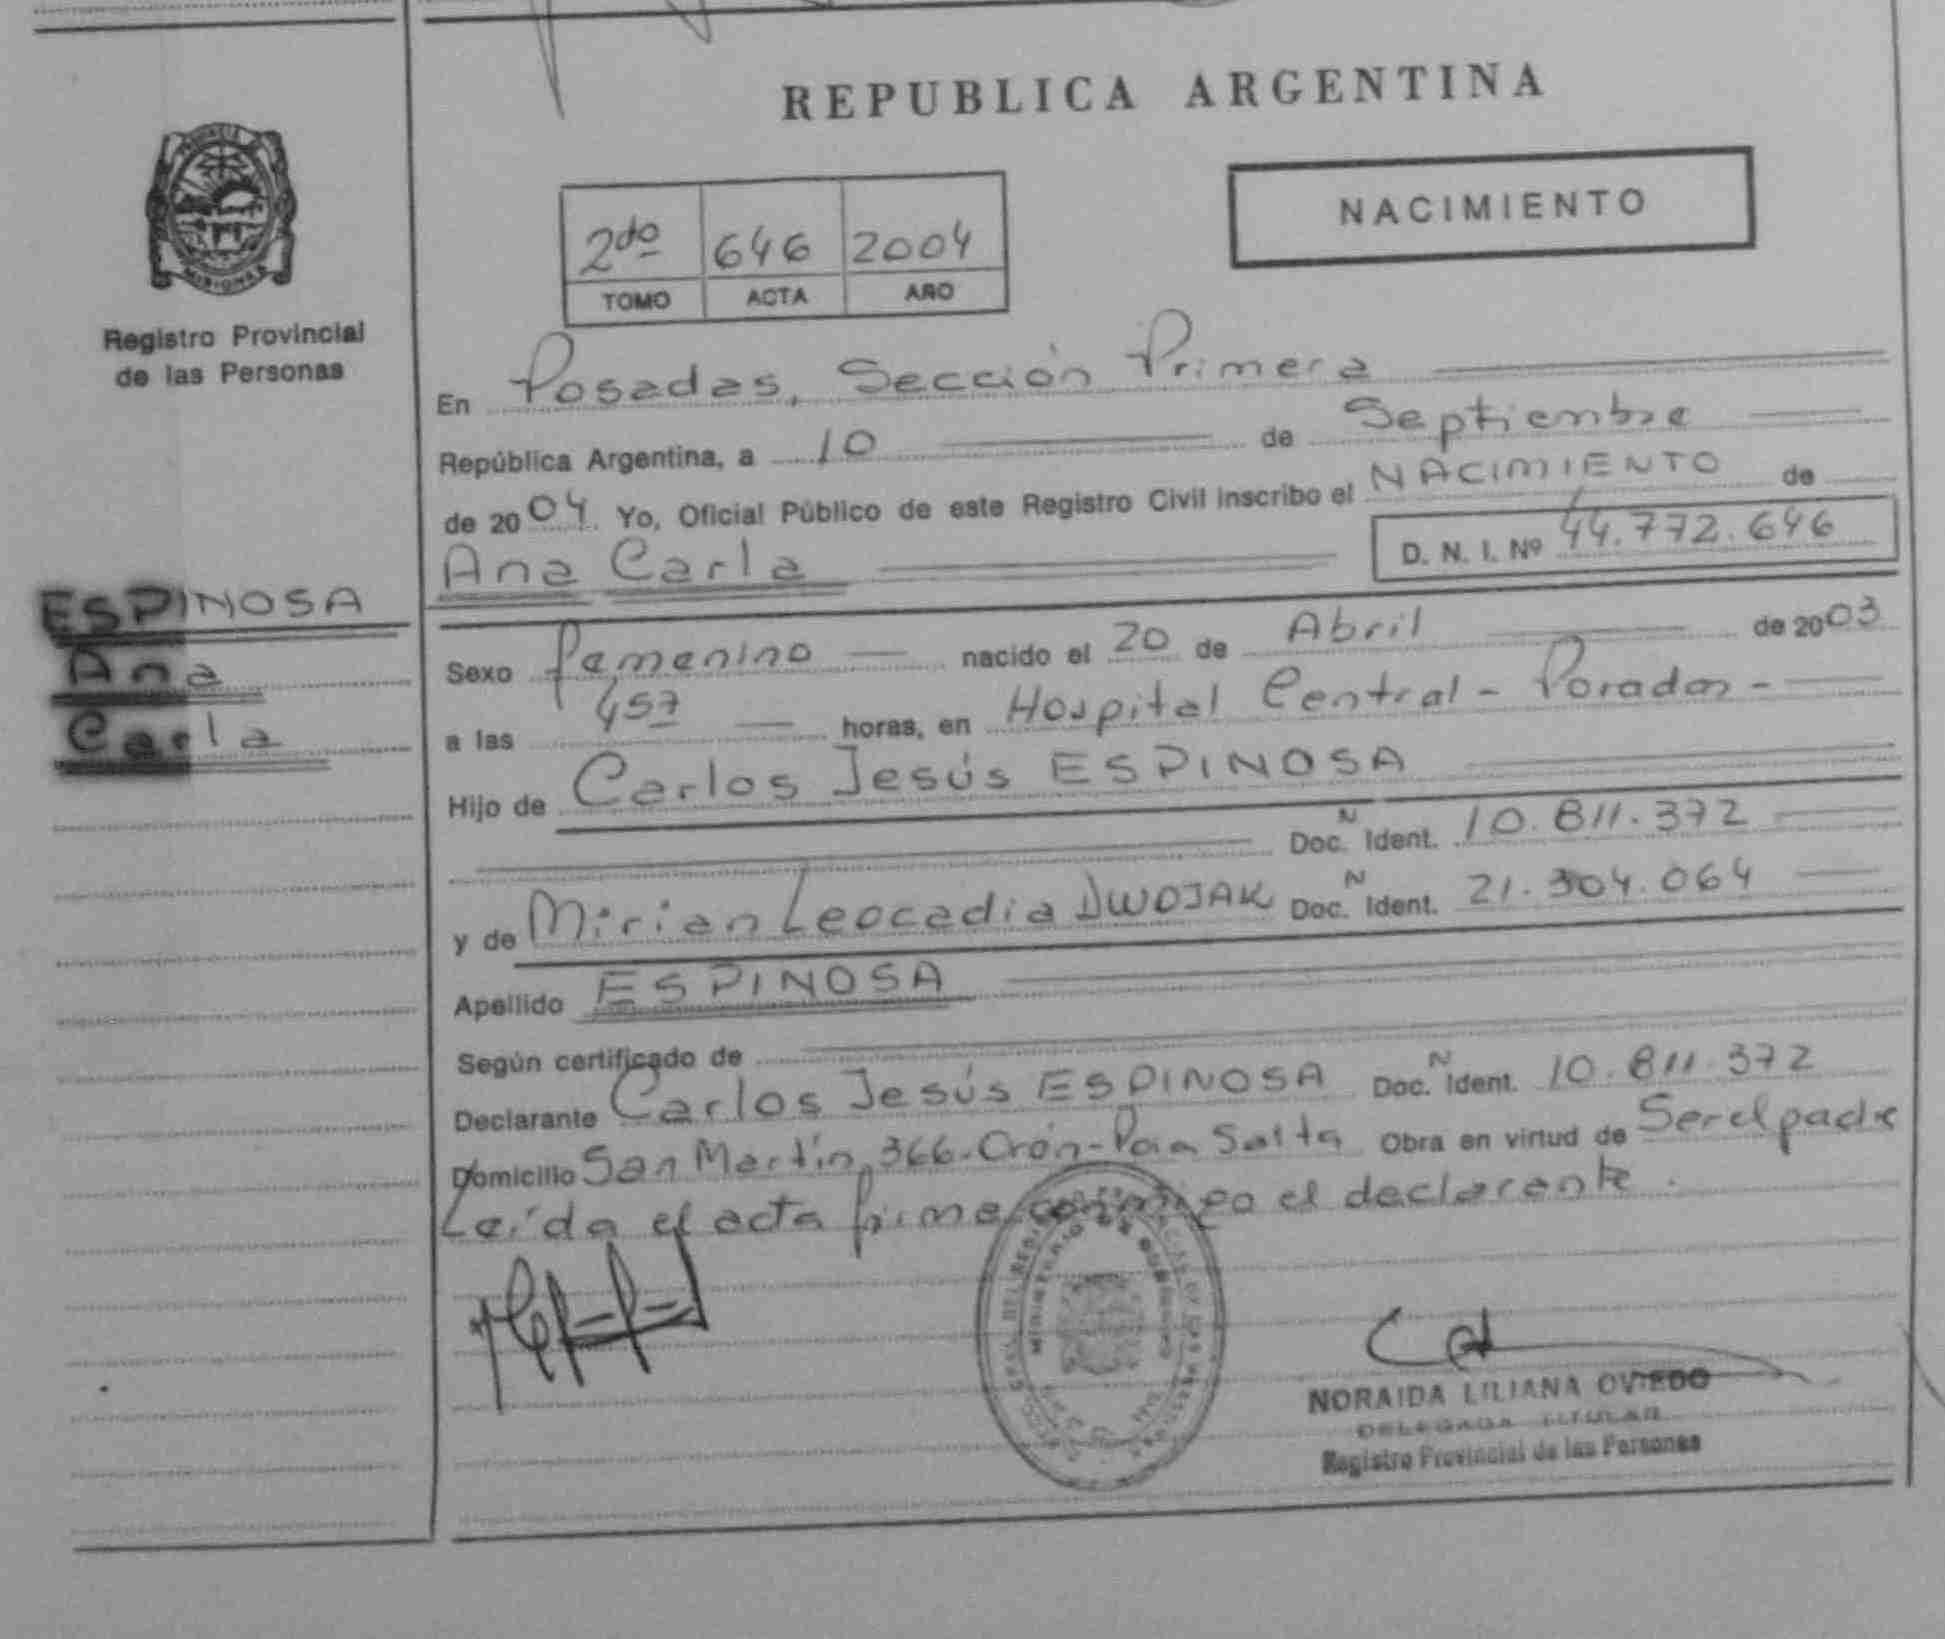 REPUBLICA ARGENTINA
PROVINCIA
MISIONES
Registro Provincial
de las Personas
NACIMIENTO
2do 646 2004
TOMO ACTA AÑO
En Posadas, Sección Primera
República Argentina, a 10 de Septiembre
de 2004. Yo, Oficial Público de este Registro Civil inscribo el NACIMIENTO de
Ana Carla D. N. I. Nº 44.772.646
ESPINOSA
Ana
Carla
Sexo femenino nacido el 20 de Abril de 2003
a las 457 horas, en Hospital Central - Posadas -
Hijo de Carlos Jesús ESPINOSA
Doc. N Ident. 10.811.372
y de Mirian Leocadia DWOJAK Doc. N Ident. 21.304.064
Apellido ESPINOSA
Según certificado de
Declarante Carlos Jesús ESPINOSA Doc. N Ident. 10.811.372
Domicilio San Martín 366-Orán-Pcia Salta Obra en virtud de Ser el padre
Leída el acta firma conmigo el declarante.
MINISTERIO DE GOBIERNO
NORAIDA LILIANA OVIEDO
DELEGADA TITULAR
Registro Provincial de las Personas